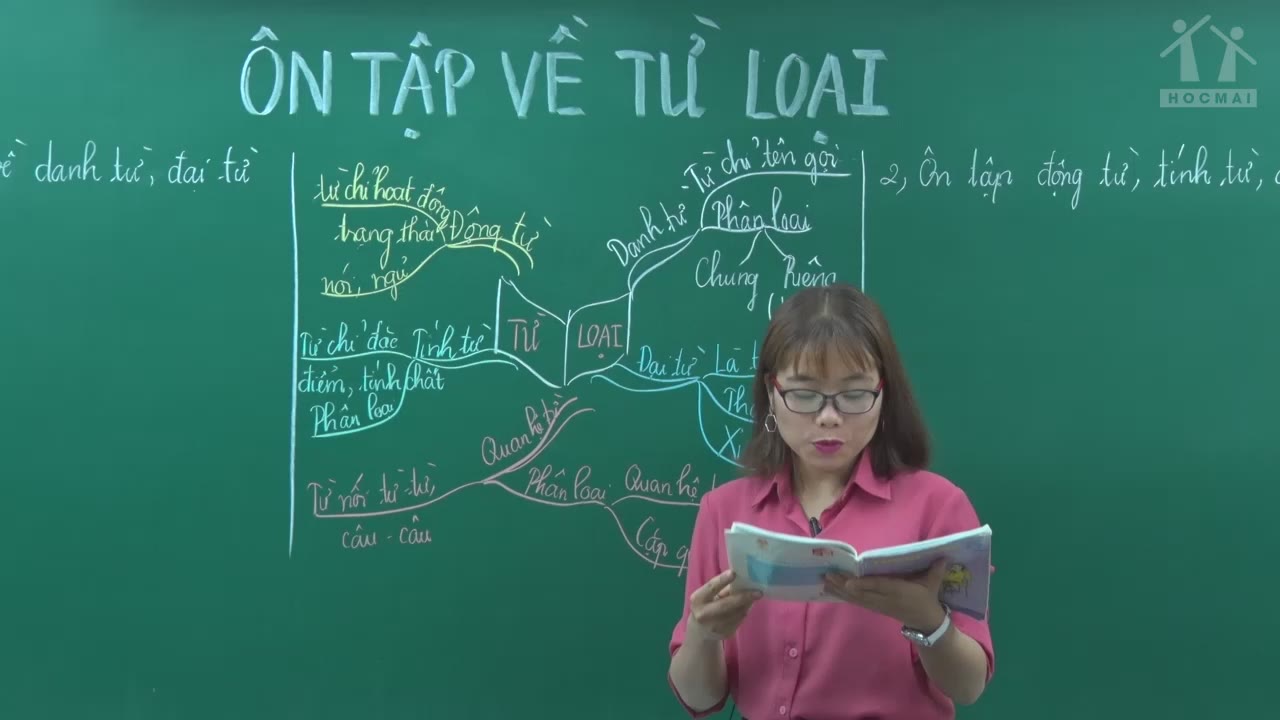 ÔN TẬP VỀ TỪ LOẠI
HOCMAI
về danh từ, đại từ
từ chỉ hoạt động
trạng thái
nói, ngủ
Động từ
Từ chỉ đặc
điểm, tính chất
Phân loại
Tính từ
TỪ LOẠI
Danh từ
Từ chỉ tên gọi
Phân loại
Chung Riêng
Đại từ
Là
Quan hệ từ
Từ nối từ-từ,
câu - câu
Phân loại
Quan hệ
Cặp
2, Ôn tập động từ, tính từ,